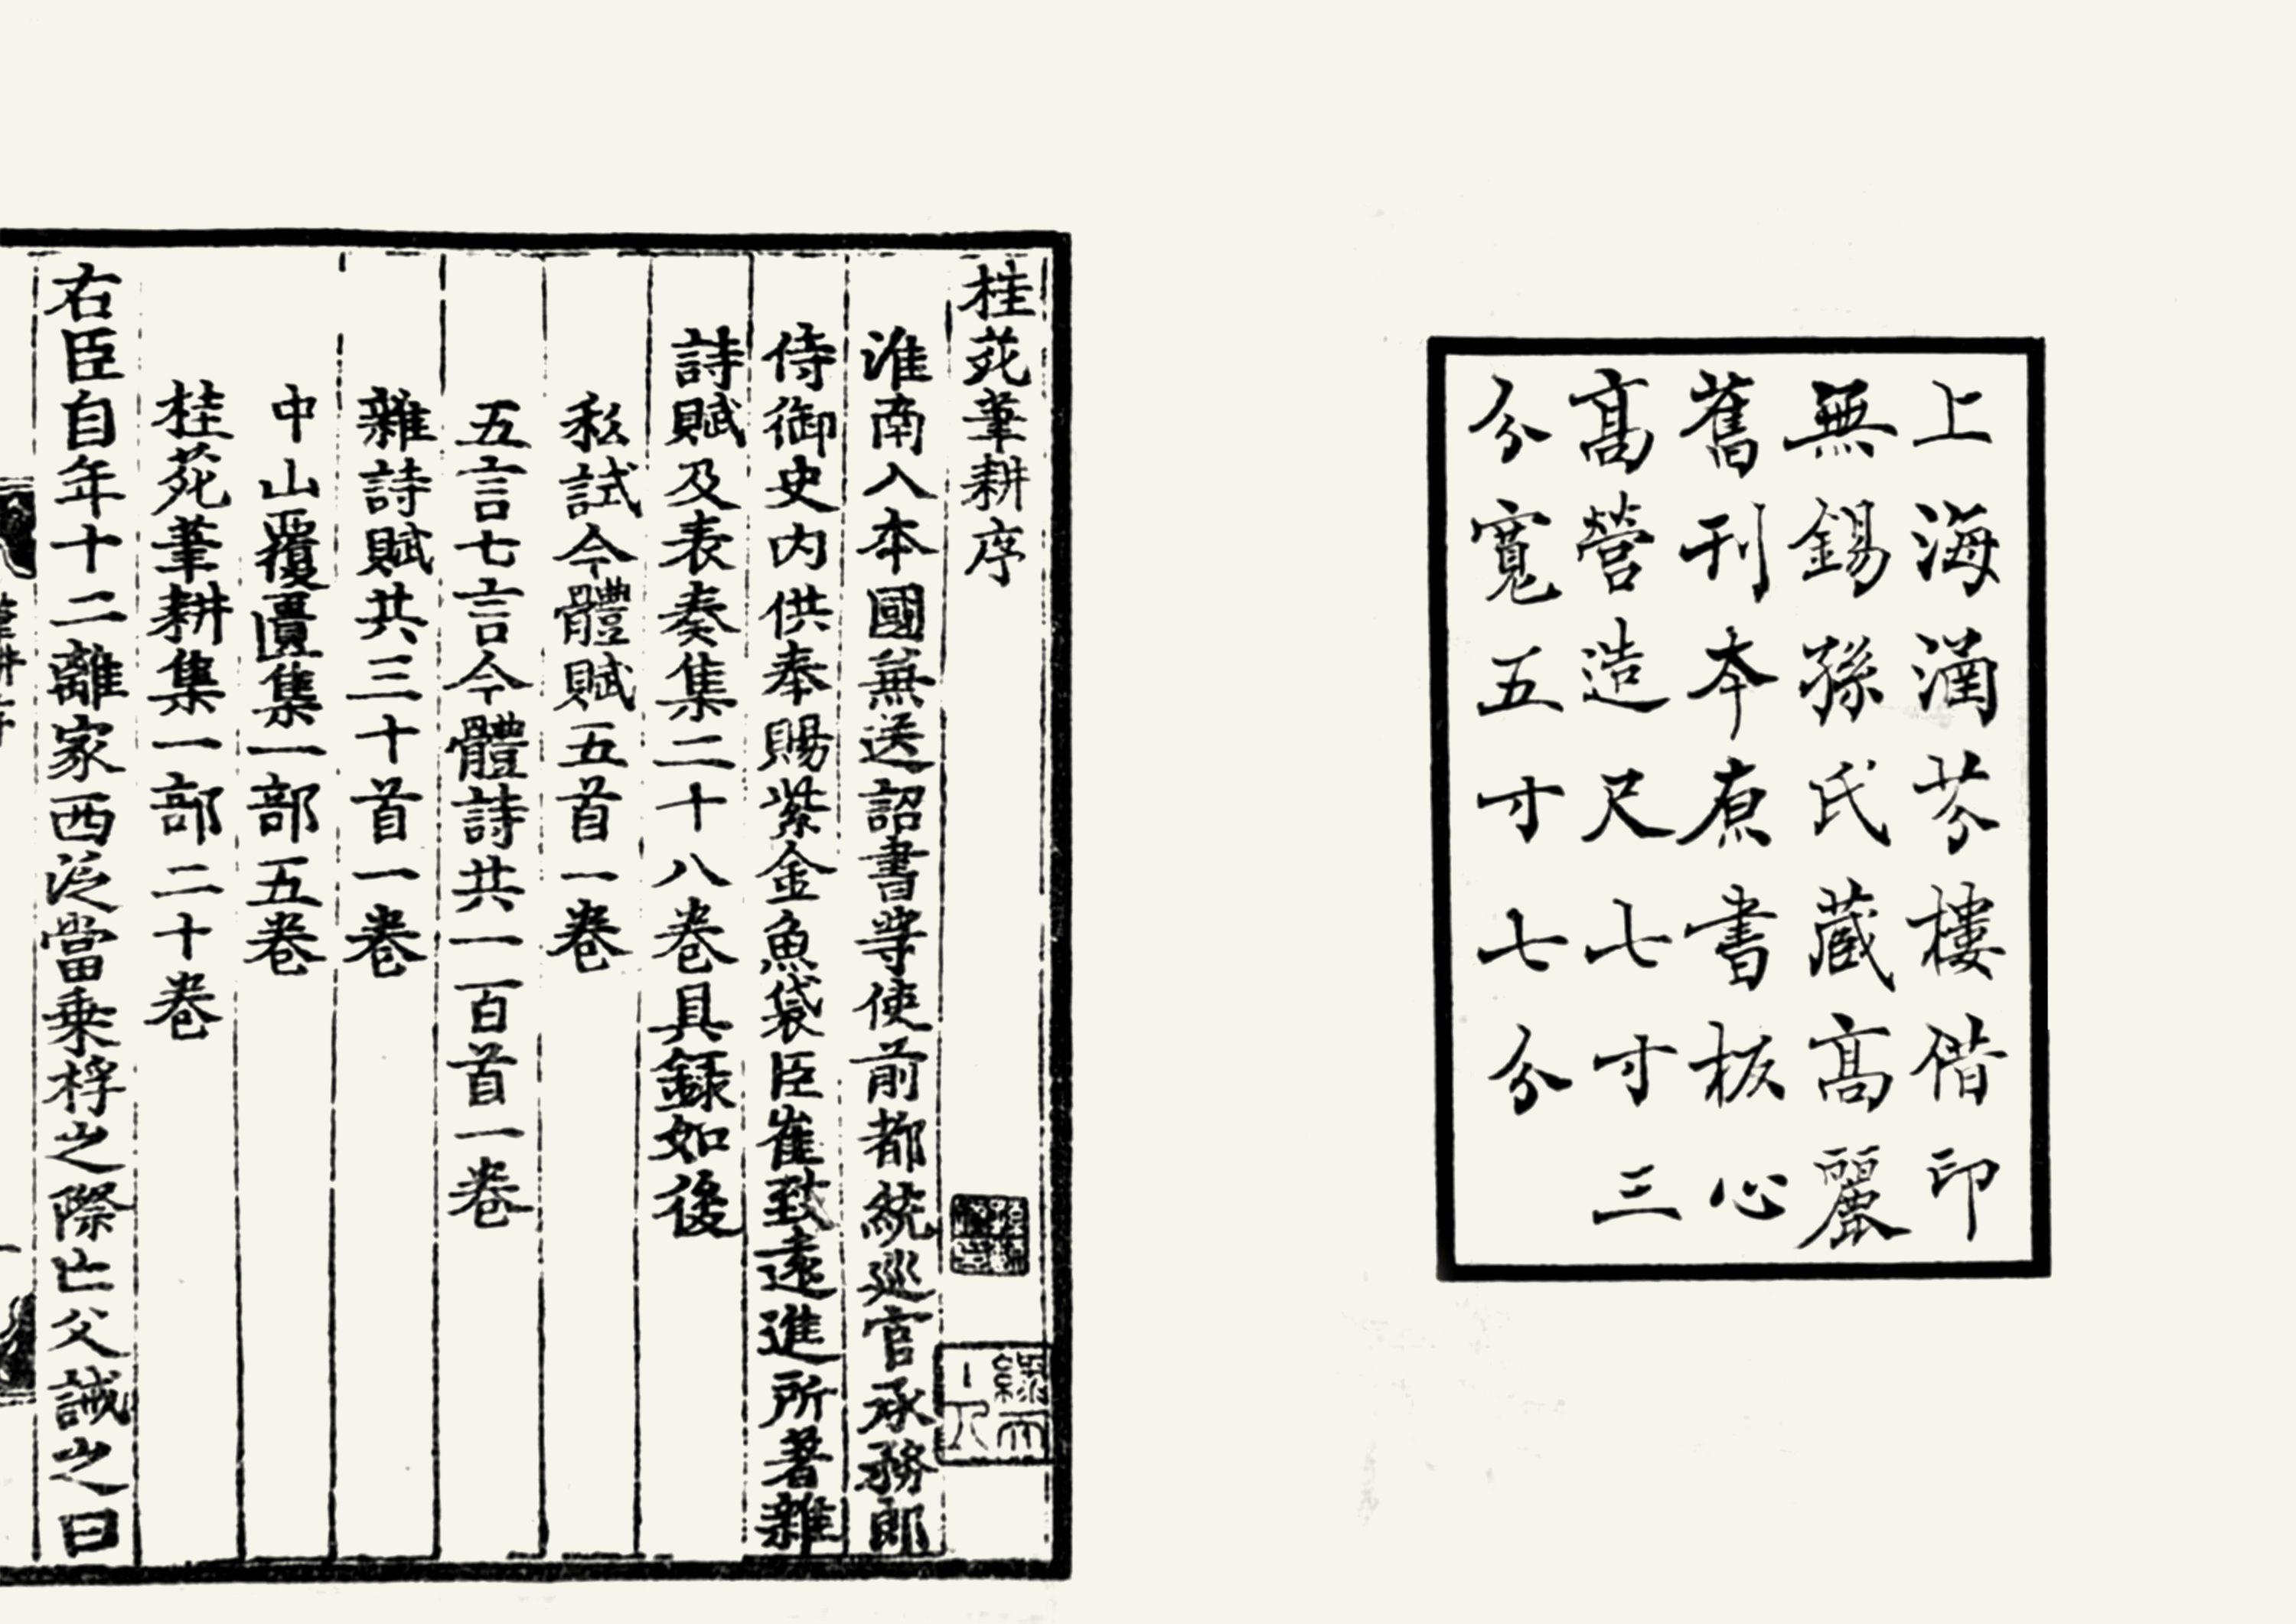 上海涵芬樓偕印
無錫孫氏藏高麗
舊刊本原書板心
高營造尺七寸三
分寬五寸七分
桂苑筆耕序
淮南入本國兼送詔書等使前都統巡官承務郎
侍御史内供奉賜紫金魚袋臣崔致遠進所著雜
詩賦及表奏集二十八卷具錄如後
私試今體賦五首一卷
五言七言今體詩共一百首一卷
雜詩賦共三十首一卷
中山覆簣集一部五卷
桂苑筆耕集一部二十卷
右臣自年十二離家西泛當乗桴之際亡父誡之曰